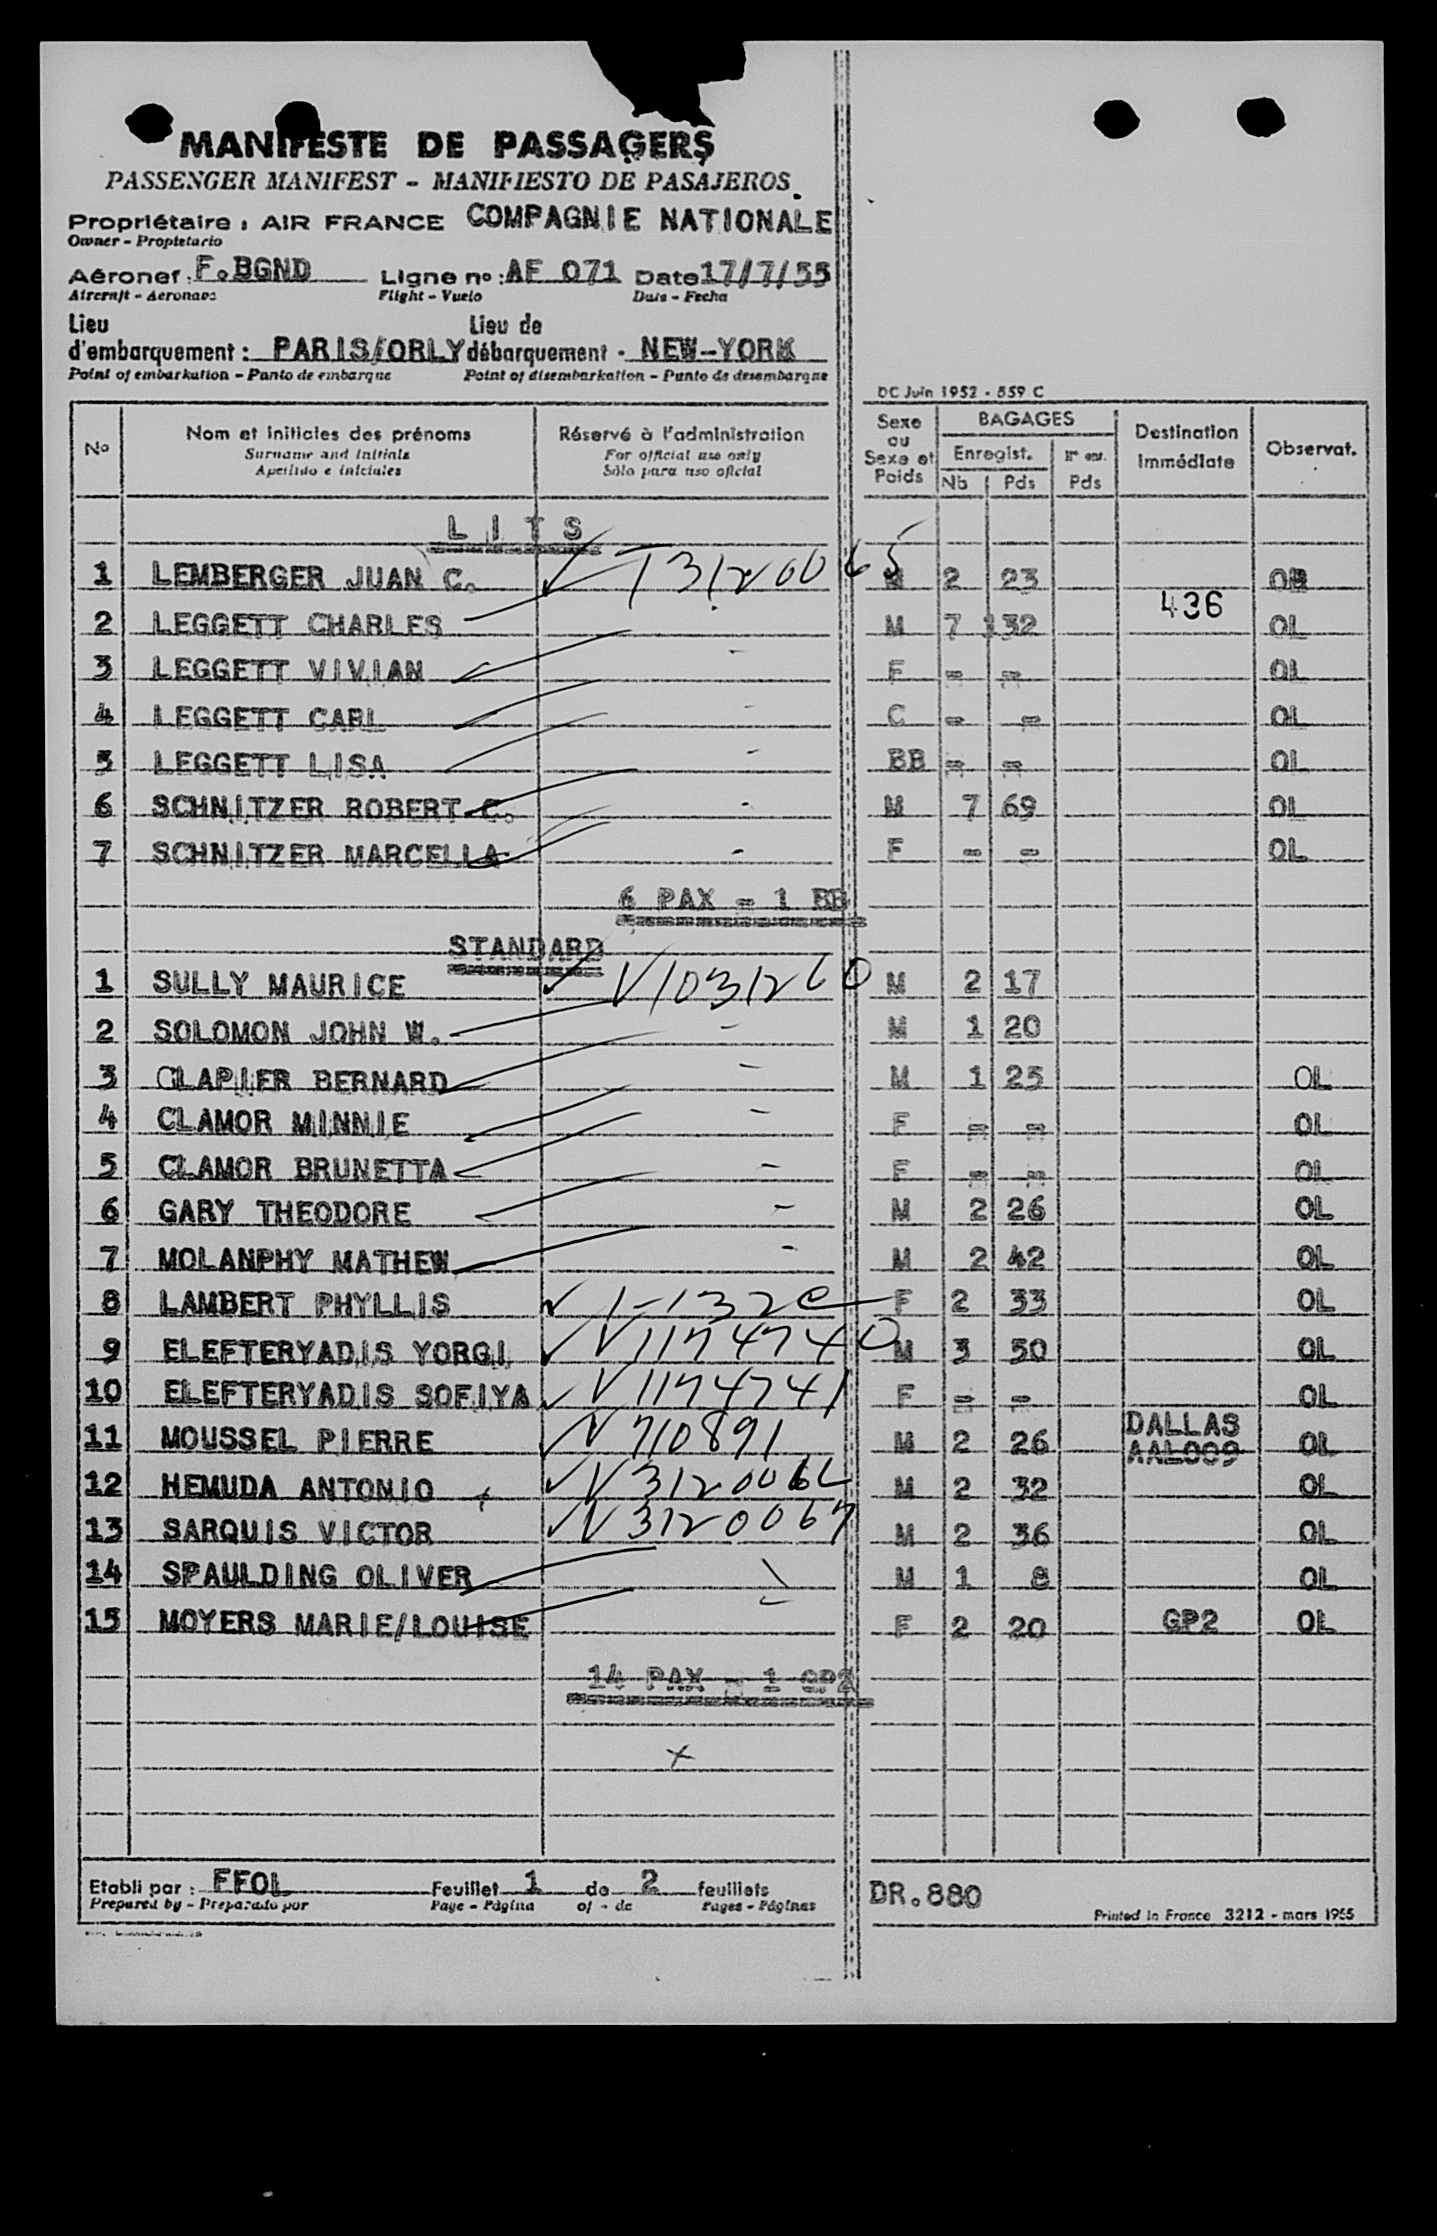 MANIFESTE DE PASSAGERS
PASSENGER MANIFEST - MANIFIESTO DE PASAJEROS
Propriétaire : AIR FRANCE COMPAGNIE NATIONALE
Owner - Propietario
Aéronef : F.BGND Ligne no : AF 071 Date 17/7/55
Aircraft - Aeronave Flight - Vuelo Date - Fecha
Lieu d'embarquement : PARIS/ORLY Lieu de débarquement - NEW-YORK
Point of embarkation - Punto de embarque Point of disembarkation - Punto de desembarque
DC Juin 1952 - 559 C
No Nom et initiales des prénoms Réservé à l'administration Sexe ou Sexe et Poids BAGAGES Destination Immédiate Observat.
Surname and initials For official use only Enregist.
Apellido e iniciales Sólo para uso oficial Nb Pds Pds
L I T S
1 LEMBERGER JUAN C. T 3120065 M 2 23 OB
436
2 LEGGETT CHARLES M 7 132 OL
3 LEGGETT VIVIAN - F = = OL
4 LEGGETT CARL - C = = OL
5 LEGGETT LISA - BB = = OL
6 SCHNITZER ROBERT C. - M 7 69 OL
7 SCHNITZER MARCELLA - F = = OL
6 PAX = 1 BB
STANDARD
1 SULLY MAURICE V1031260 M 2 17
2 SOLOMON JOHN W. - M 1 20
3 CLAPIER BERNARD - M 1 25 OL
4 CLAMOR MINNIE - F = = OL
5 CLAMOR BRUNETTA - F = = OL
6 GARY THEODORE - M 2 26 OL
7 MOLANPHY MATHEW - M 2 42 OL
8 LAMBERT PHYLLIS F 2 33 OL
9 ELEFTERYADIS YORGI V1174740 M 3 50 OL
10 ELEFTERYADIS SOFIYA V1174741 F = = OL
11 MOUSSEL PIERRE V710891 M 2 26 DALLAS AAL009 OL
12 HEMUDA ANTONIO V3120066 M 2 32 OL
13 SARQUIS VICTOR V3120067 M 2 36 OL
14 SPAULDING OLIVER M 1 8 OL
15 MOYERS MARIE/LOUISE F 2 20 GP2 OL
14 PAX = 1 GP2
x
Etabli par : FFOL Feuillet 1 de 2 feuillets DR.880
Prepared by - Preparado por Page - Página of - de Pages - Páginas Printed in France 3212 - mars 1955